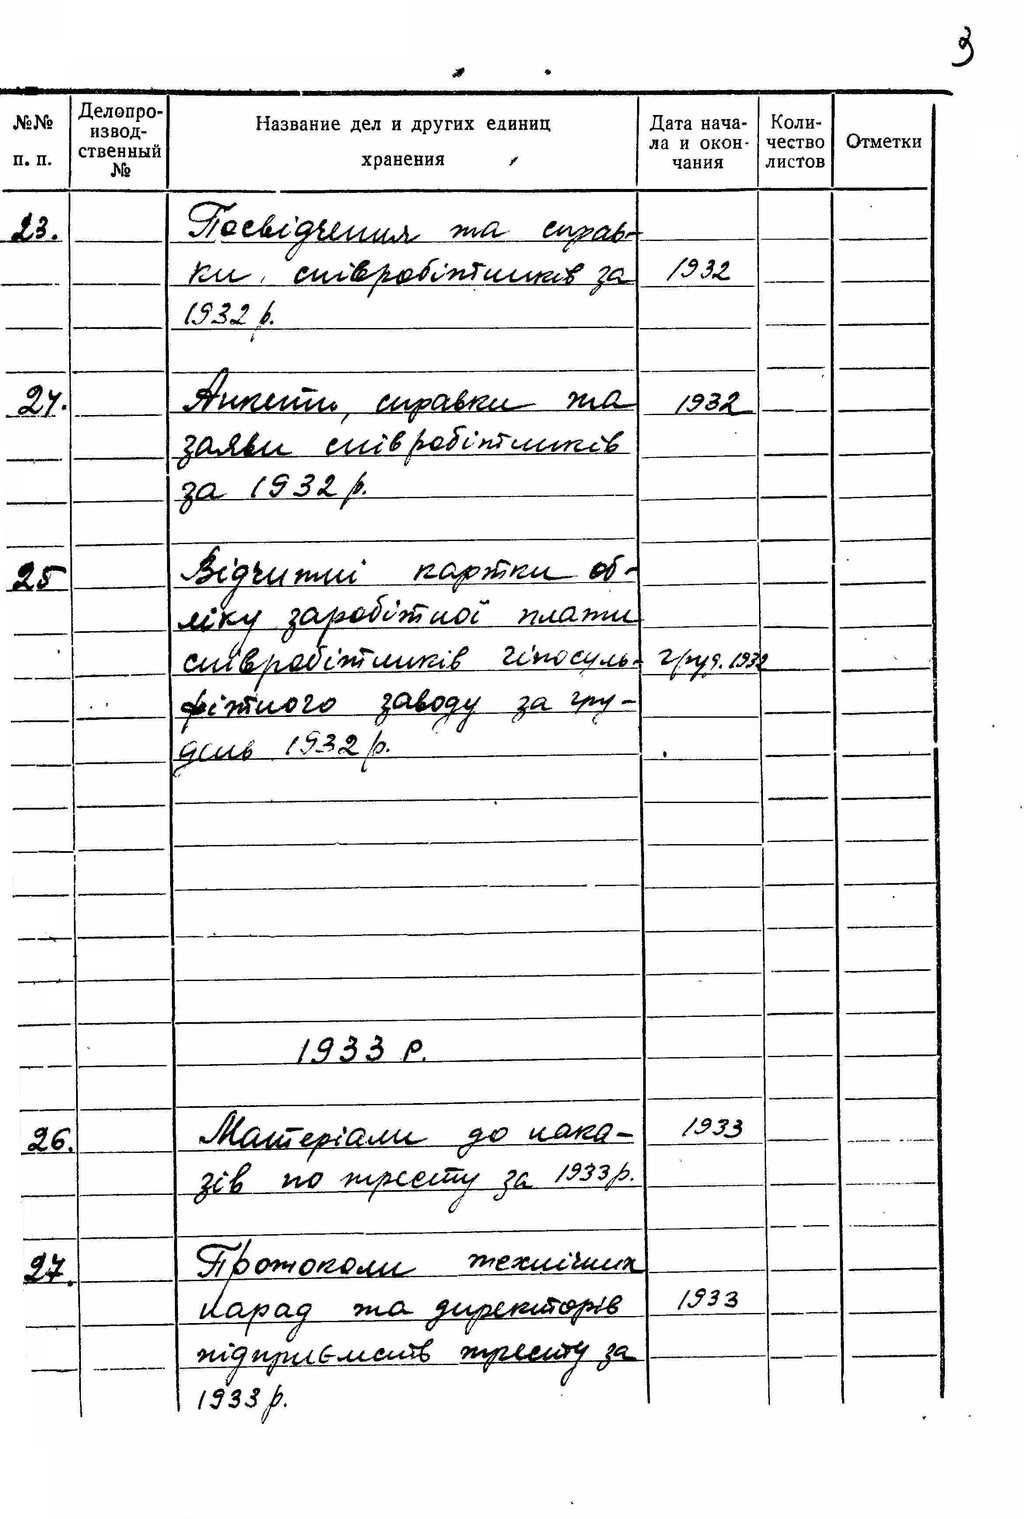 3
№№ п. п.
Делопроизводственный №
Название дел и других единиц хранения
Дата начала и окончания
Количество листов
Отметки
23. Посвідчення та справ-
ки співробітників за 1932
1932 р.
24. Анкети, справки та 1932
заяви співробітників
за 1932 р.
25 Відчитні картки об-
ліку заробітної плати
співробітників гіпосуль- груд. 1932
фітного заводу за гру-
день 1932 р.
1933 р.
26. Матеріали до нака- 1933
зів по тресту за 1933 р.
27. Протоколи технічних
нарад та директорів 1933
підприємств тресту за
1933 р.